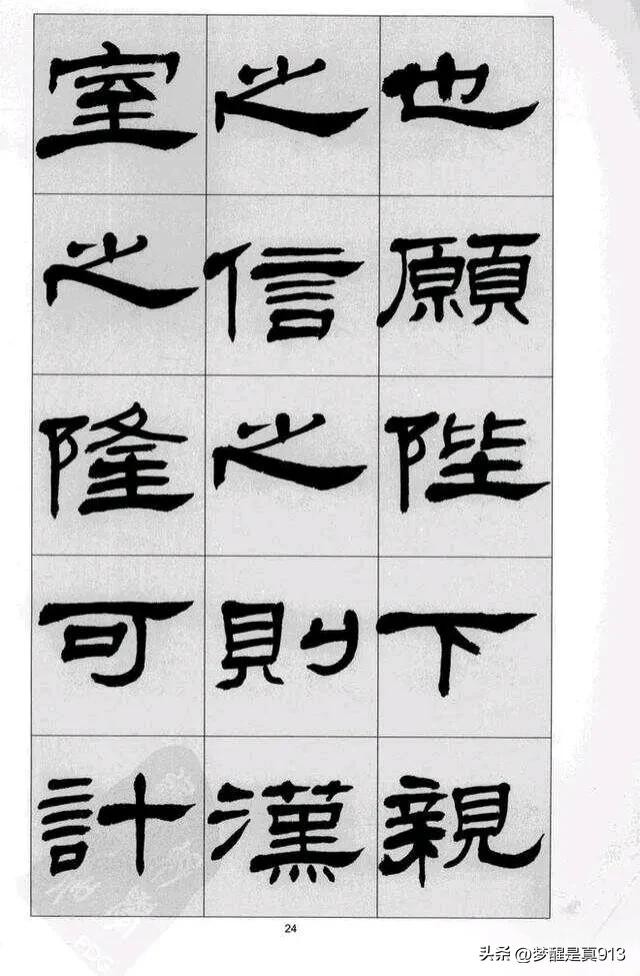 也願陛下親
之信之則漢
室之隆可計
24
头条 @梦醒是真913